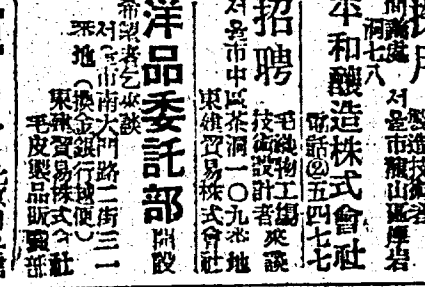 製造技術者
서울市龍山區厚岩
洞七八
平和釀造株式會社
電話②五四七七
招聘
毛織物工場 來談
技術設計者
서울市中區茶洞一〇九番地
貿易株式會社
洋品委託部 開設
希望者乞來談
서울市南大門路二街三一
番地(換金銀行越便)
貿易株式会社
毛皮製品販賣部